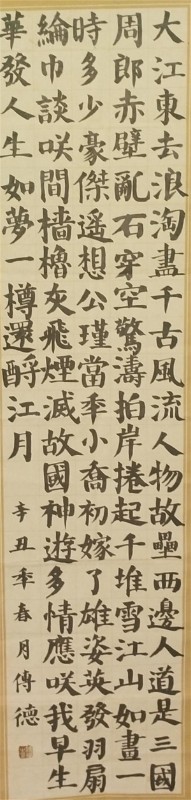 大江東去浪淘盡千古風流人物故壘西邊人道是三國
周郎赤壁亂石穿空驚濤拍岸捲起千堆雪江山如畫一
時多少豪傑遥想公瑾當秊小喬初嫁了雄姿英發羽扇
綸巾談咲間檣櫓灰飛煙滅故國神遊多情應咲我早生
華發人生如夢一樽還酹江月
辛丑秊春月傅德